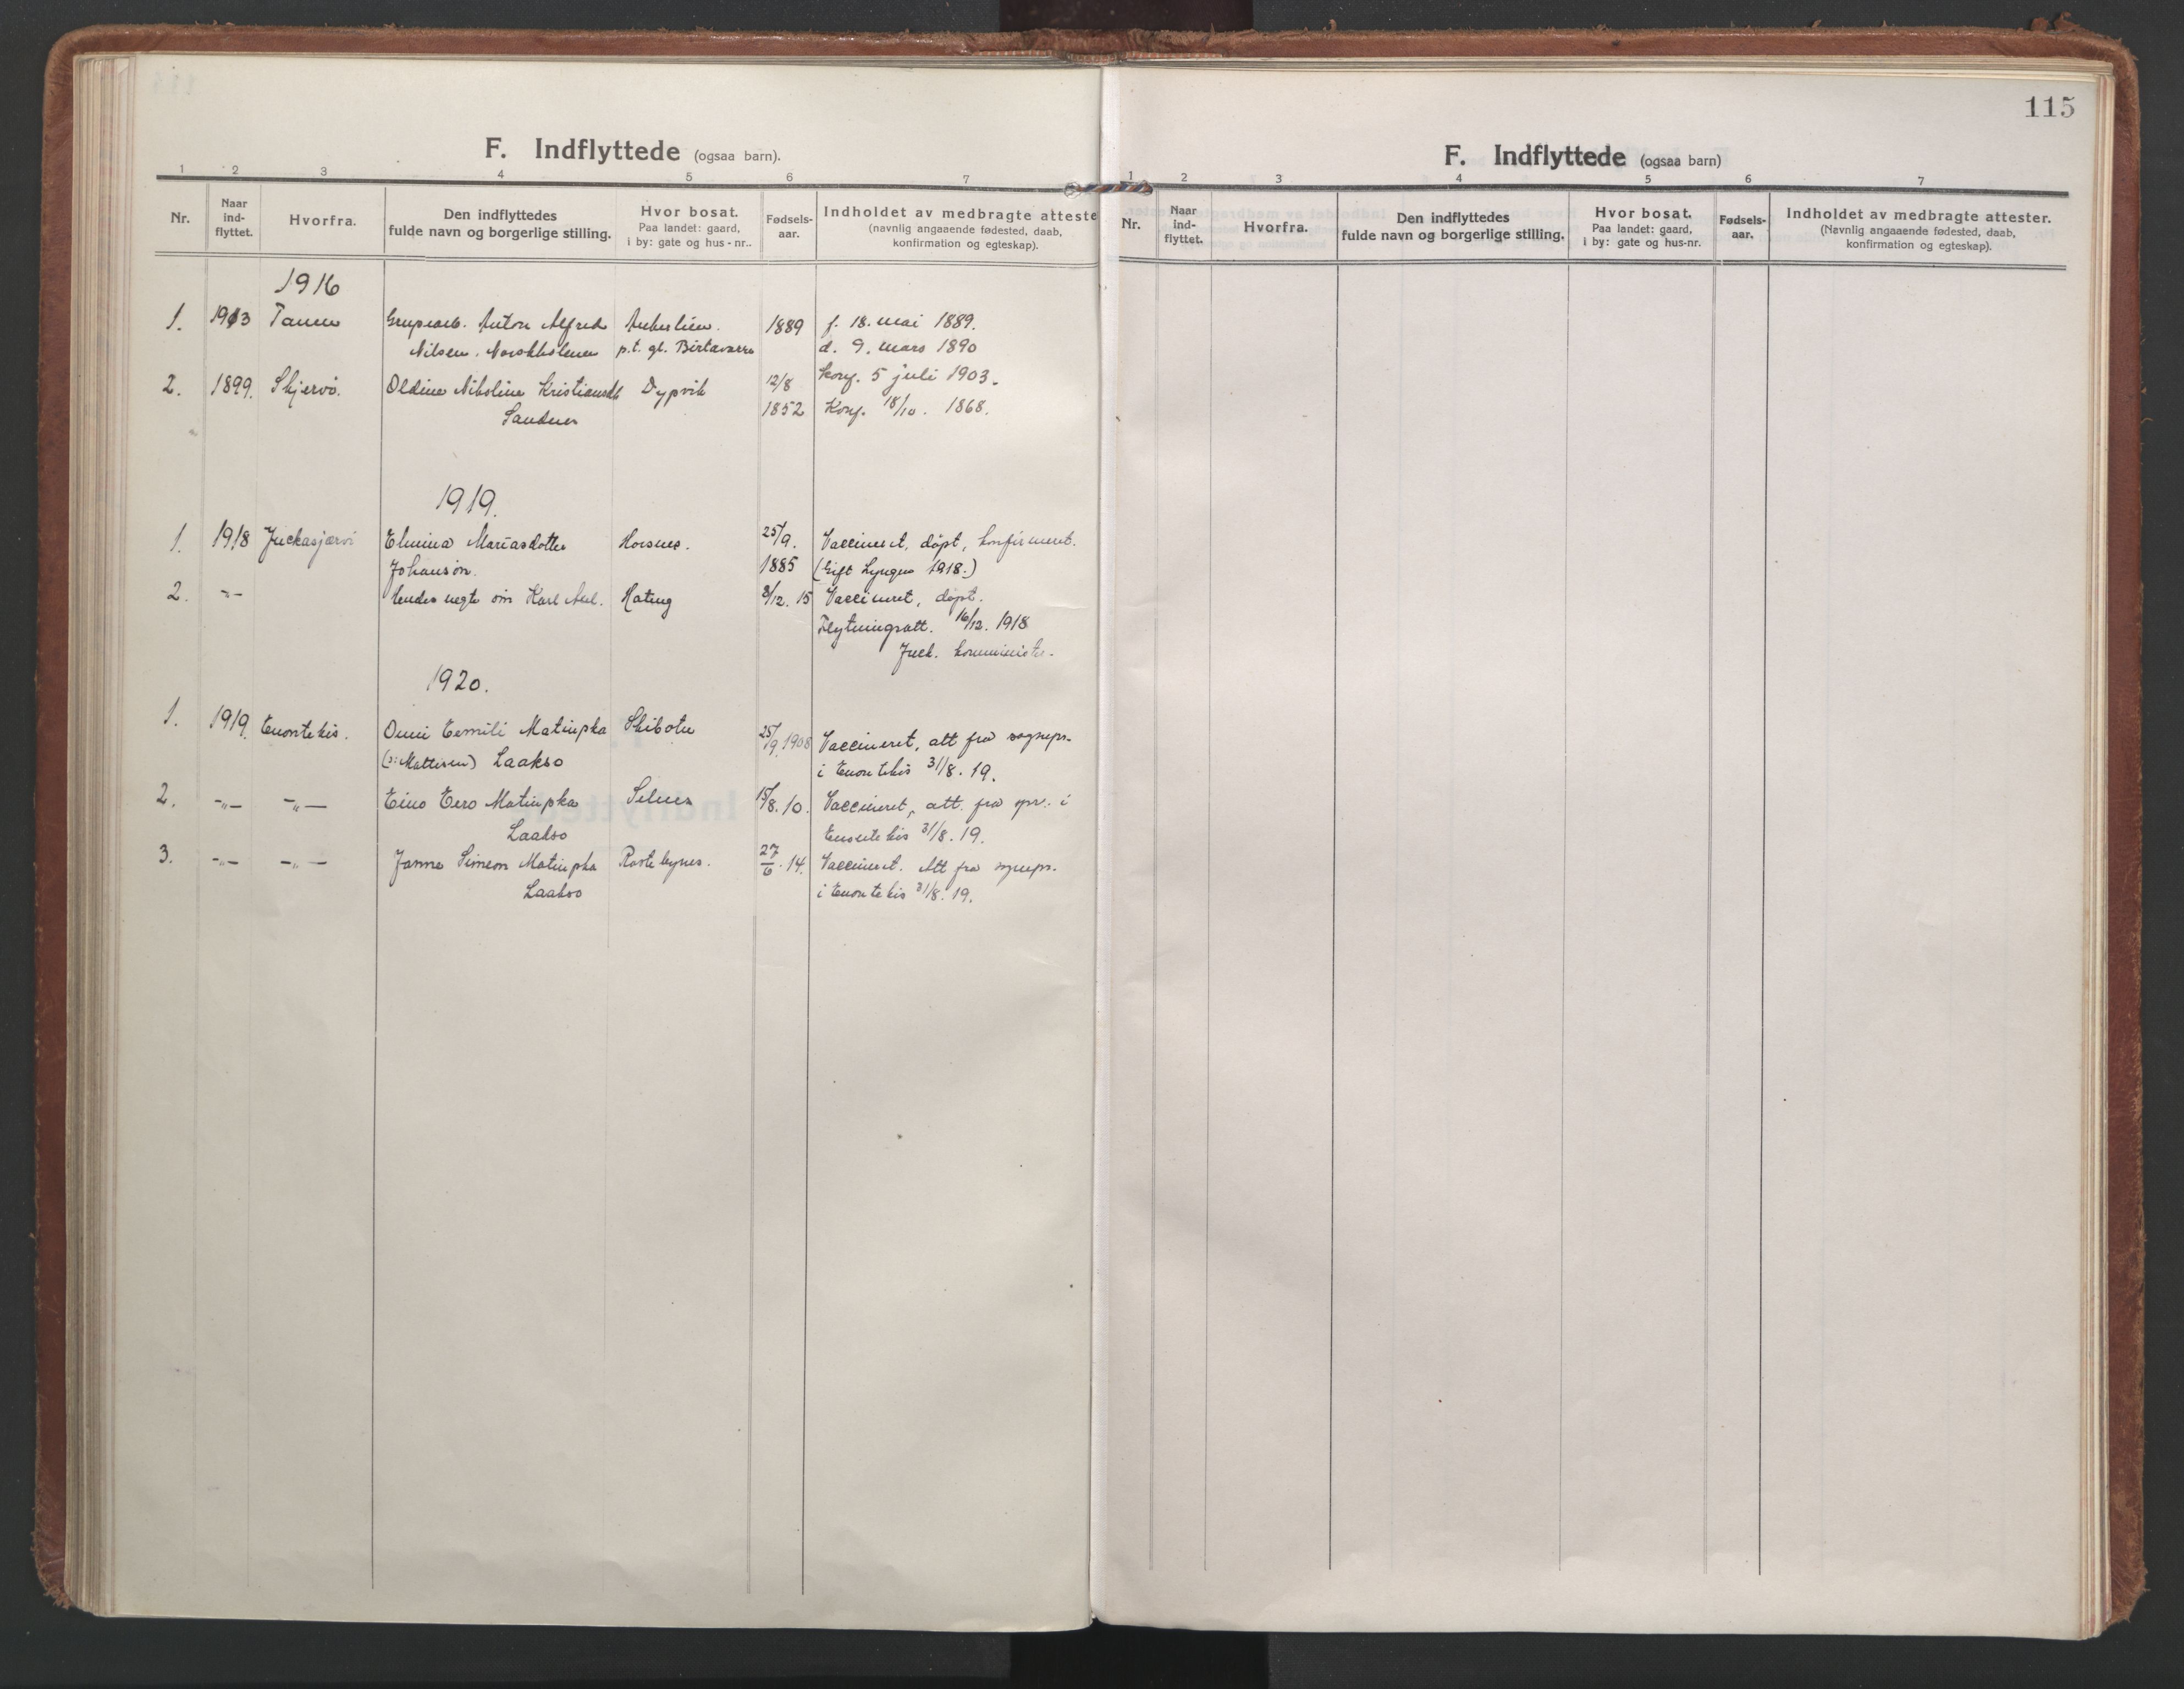 F. Indflyttede (ogsaa barn).
1 2 3 4 5 6 7
Nr. Naar ind-flyttet. Hvorfra. Den indflyttedes fulde navn og borgerlige stilling. Hvor bosat. Paa landet: gaard, i by: gate og hus-nr.. Fødsels-aar. Indholdet av medbragte atteste (navnlig angaaende fødested, daab, konfirmation og egteskap).
1916
1. 1913 Tanen Anton Alfred 1889 f. 18. mai 1889.
Nilsen. p.t. gl. Birtavarre d. 9. mars 1890
konf. 5 juli 1903.
2. 1899. Skjervö. Oldine Nikoline Kristiansdt Dypvik 12/8
Sandnes 1852 Konf. 18/10. 1868.
1919.
1. 1918 Juckasjärvi Elmina Mariasdotter Horsnes. 25/9. Vaccineret, döpt, konfirmeret.
Johanson. 1885 (Gift Lyngen 1918.)
2. -"- Hendes uegte sön Karl Axl. 8/12. 15 Vaccineret, döpt.
Flytningsatt. 16/12. 1918
Juck. komminister.
1920.
1. 1919. Enontekis. Onni Eemili Matinpka Skibotn 25/9. 1908 Vaccineret, att fra sognepr.
(o: Mattisen) Laakso i Enontekis 31/8. 19.
2. -"- -"- Eino Eero Matinpka Selnes 15/8. 10. Vaccineret, att. fra spr. i
Laakso Enontekis 31/8. 19.
3. -"- -"- Janne Simeon Matinpka Rastebynes. 27/6. 14. Vaccineret. Att fra sognepr.
Laakso i Enontekis 31/8. 19.
115
F. Indflyttede (ogsaa barn)
1 2 3 4 5 6 7
Nr. Naar ind-flyttet. Hvorfra. Den indflyttedes fulde navn og borgerlige stilling. Hvor bosat. Paa landet: gaard, i by: gate og hus-nr. Fødsels-aar. Indholdet av medbragte attester. (Navnlig angaaende fødested, daab, konfirmation og egteskap).